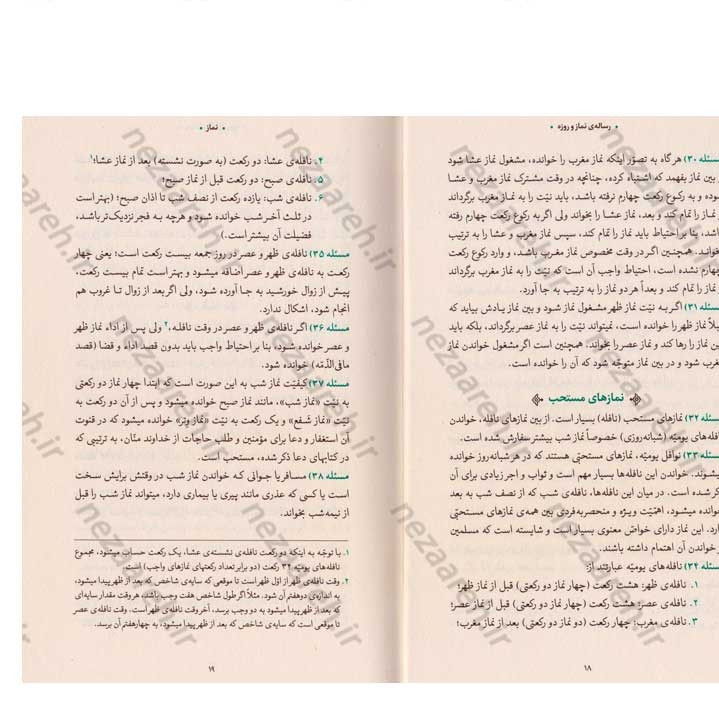 • رساله‌ی نماز و روزه •
مسئله ۳۰) هرگاه به تصوّر اینکه نماز مغرب را خوانده، مشغول نماز عشا شود
و بین نماز بفهمد که اشتباه کرده، چنانچه در وقت مشترک نماز مغرب و عشا
بوده و به رکوع رکعت چهارم نرفته باشد، باید نیّت را به نماز مغرب برگرداند
نماز را تمام کند و بعد، نماز عشا را بخواند ولی اگر به رکوع رکعت چهارم رفته
باشد، بنا بر احتیاط باید نماز را تمام کند، سپس نماز مغرب و عشا را به ترتیب
بخواند. همچنین اگر در وقت مخصوص نماز مغرب باشد، و وارد رکوع رکعت
چهارم نشده است، احتیاط واجب آن است که نیّت را به نماز مغرب برگرداند
نماز را تمام کند و بعداً هر دو نماز را به ترتیب به جا آورد.
مسئله ۳۱) اگر به نیّت نماز ظهر مشغول نماز شود و بین نماز یادش بیاید که
قبلاً نماز ظهر را خوانده است، نمیتواند نیّت را به نماز عصر برگرداند، بلکه باید
این نماز را رها کند و نماز عصر را بخواند. همچنین است اگر مشغول خواندن نماز
مغرب شود و در بین نماز متوجّه شود که آن را خوانده است.
نمازهای مستحب
مسئله ۳۲) نمازهای مستحب (نافله) بسیار است. از بین نمازهای نافله، خواندن
نافله‌های یومیّه (شبانه‌روزی) خصوصاً نماز شب بیشتر سفارش شده است.
مسئله ۳۳) نوافل یومیّه، نمازهای مستحبّی هستند که در هر شبانه‌روز خوانده
میشوند. خواندن این نافله‌ها بسیار مهم است و ثواب و اجر زیادی برای آن
ذکر شده است. در میان این نافله‌ها، نافله‌ی شب که از نصف شب به بعد
خوانده میشود، اهمّیّت ویژه و منحصربه‌فردی بین همه‌ی نمازهای مستحبّی
دارد. این نماز دارای خواصّ معنوی بسیار است و شایسته است که مسلمین
به خواندن آن اهتمام داشته باشند.
مسئله ۳۴) نافله‌های یومیّه عبارتند از:
۱. نافله‌ی ظهر: هشت رکعت (چهار نماز دو رکعتی) قبل از نماز ظهر؛
۲. نافله‌ی عصر: هشت رکعت (چهار نماز دو رکعتی) قبل از نماز عصر؛
۳. نافله‌ی مغرب: چهار رکعت (دو نماز دو رکعتی) بعد از نماز مغرب؛
۱۸
• نماز •
۴. نافله‌ی عشا: دو رکعت (به صورت نشسته) بعد از نماز عشا؛۱
۵. نافله‌ی صبح: دو رکعت قبل از نماز صبح؛
۶. نافله‌ی شب: یازده رکعت از نصف شب تا اذان صبح؛ (بهتر است
در ثلث آخر شب خوانده شود و هرچه به فجر نزدیک‌تر باشد،
فضیلت آن بیشتر است.)
مسئله ۳۵) نافله‌ی ظهر و عصر در روز جمعه بیست رکعت است؛ یعنی چهار
رکعت به نافله‌ی ظهر و عصر اضافه میشود و بهتر است تمام بیست رکعت،
پیش از زوال خورشید به جا آورده شود، ولی اگر بعد از زوال تا غروب هم
انجام شود، اشکال ندارد.
مسئله ۳۶) اگر نافله‌ی ظهر و عصر در وقت نافله،۲ ولی پس از اداء نماز ظهر
و عصر خوانده شود، بنا بر احتیاط واجب باید بدون قصد اداء و قضا (قصد
مافی‌الذّمّه) خوانده شود.
مسئله ۳۷) کیفیّت نماز شب به این صورت است که ابتدا چهار نماز دو رکعتی
به نیّت «نماز شب»، مانند نماز صبح خوانده میشود و پس از آن دو رکعت به
نیّت «نماز شَفع» و یک رکعت به نیّت «نماز وَتر» خوانده میشود که در قنوت
آن استغفار و دعا برای مؤمنین و طلب حاجات از خداوند منّان، به ترتیبی که
در کتابهای دعا ذکر شده، مستحب است.
مسئله ۳۸) مسافر یا جوانی که خواندن نماز شب در وقتش برایش سخت
است یا کسی که عذری مانند پیری یا بیماری دارد، میتواند نماز شب را قبل
از نیمه‌شب بخواند.
۱. با توجّه به اینکه دو رکعت نافله‌ی نشسته‌ی عشا، یک رکعت حساب میشود، مجموع
نافله‌های یومیّه ۳۴ رکعت (دو برابر تعداد رکعتهای نمازهای واجب) است.
۲. وقت نافله‌ی ظهر از اوّل ظهر است تا موقعی که سایه‌ی شاخص که بعد از ظهر پیدا میشود،
به اندازه‌ی دوهفتم آن شود. مثلاً اگر طول شاخص هفت وجب باشد، هر وقت مقدار سایه‌ای
که بعد از ظهر پیدا میشود به دو وجب برسد، آخر وقت نافله‌ی ظهر است. وقت نافله‌ی عصر
تا موقعی است که سایه‌ی شاخص که بعد از ظهر پیدا میشود، به چهارهفتم آن برسد.
۱۹
nezaareh.ir